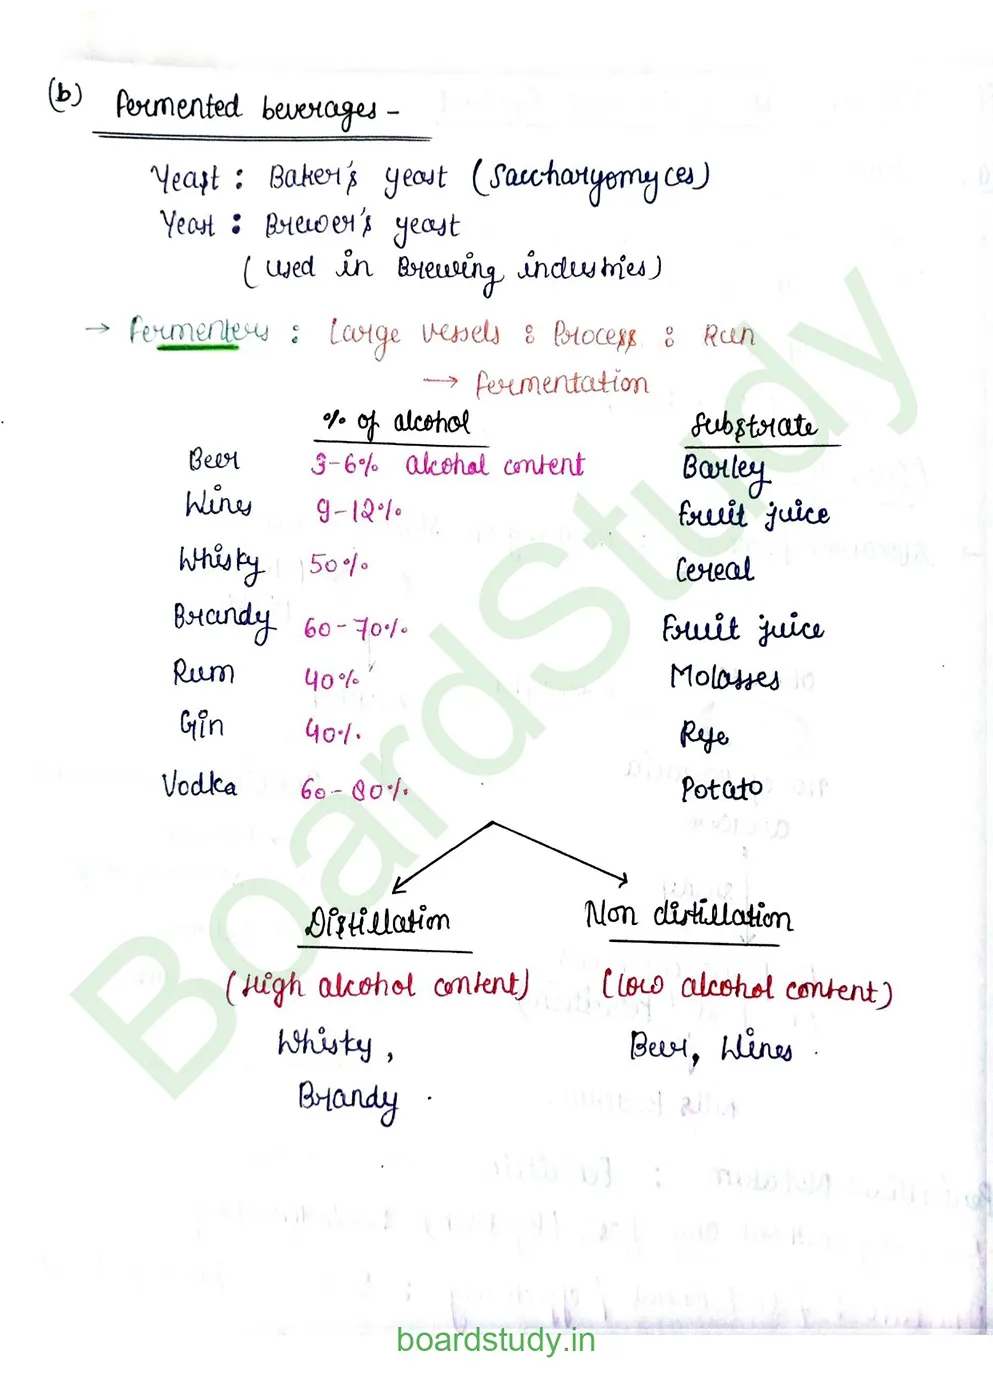 (b) Fermented beverages -
Yeast : Baker's yeast (Saccharyomyces)
Yeast : Brewer's yeast
(used in Brewing industries)
→ Fermenters : Large vessels : Process : Run
→ Fermentation
% of alcohol Substrate
Beer 3-6% alcohal content Barley
Wines 9-12% Fruit juice
Whisky 50% Cereal
Brandy 60-70% Fruit juice
Rum 40% Molasses
Gin 40%. Rye
Vodka 60-80% Potato
Distillation Non distillation
(High alcohol content) (low alcohol content)
Whisky, Beer, Wines.
Brandy.
BoardStudy
boardstudy.in